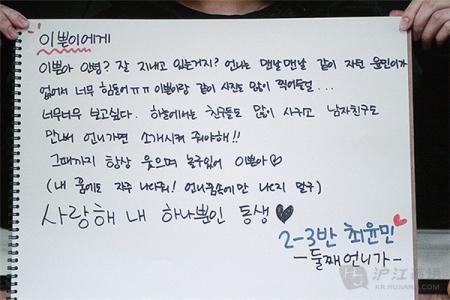 이쁜이에게
이쁜아 안녕? 잘 지내고 있는거지? 언니는 맨날맨날 같이 자던 울민이가
없어서 너무 힘들어ㅠㅠ 이쁜이랑 같이 사진도 많이 찍어둘걸...
너무너무 보고싶다. 하늘에서는 친구들도 많이 사귀고 남자친구도
만나봐 언니가면 소개시켜 줘야해!!
그때까지 항상 웃으며 놀구있어 이쁜아♡
(내 꿈에도 자주 나타줘! 언니꿈속에만 나오지 말구)
사랑해 내 하나뿐인 동생 ♥
2-3반 최윤민
-둘째언니가-
沪江韩语
KR.HUJIANG.COM